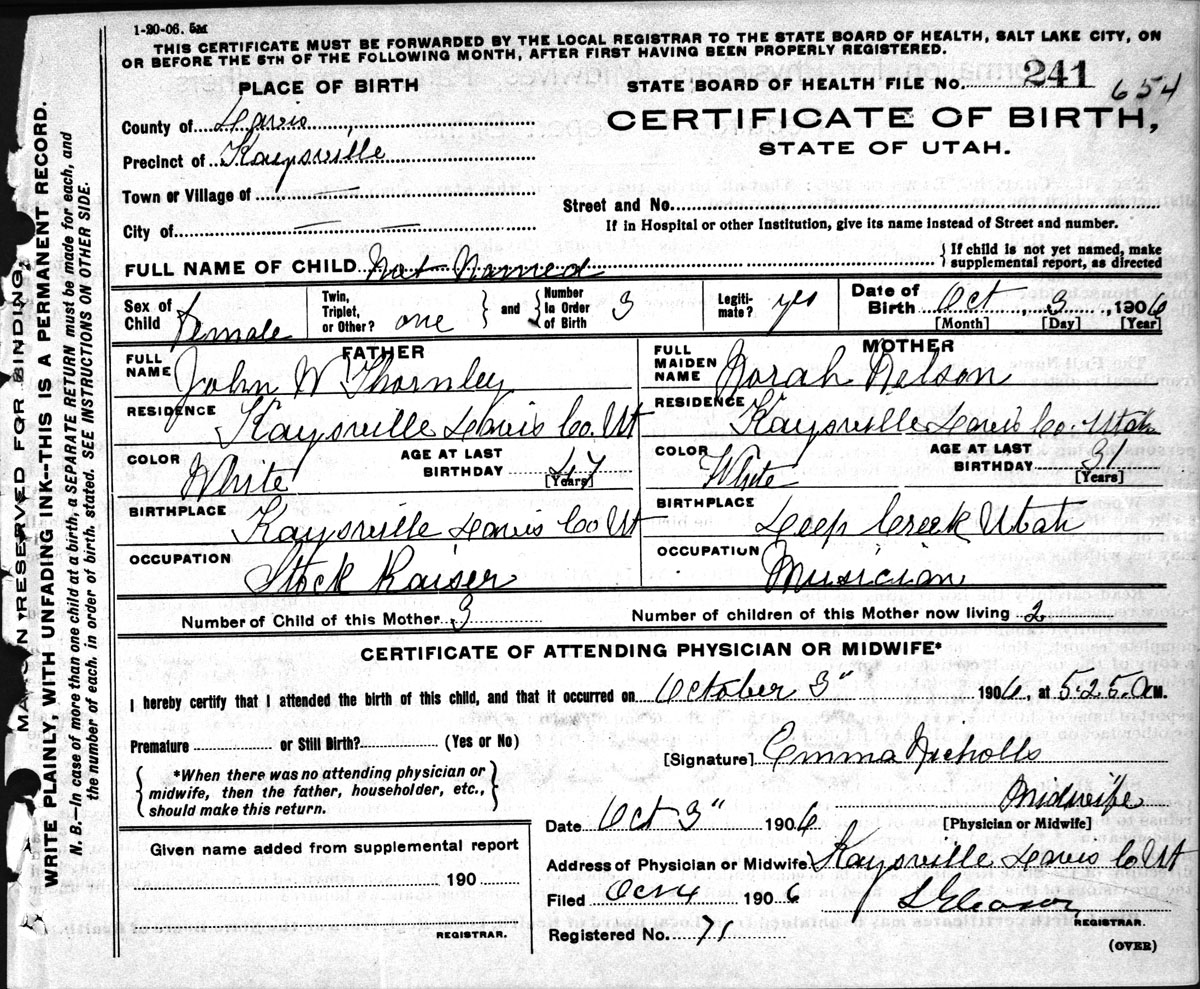 1-20-06. 5M
THIS CERTIFICATE MUST BE FORWARDED BY THE LOCAL REGISTRAR TO THE STATE BOARD OF HEALTH, SALT LAKE CITY, ON
OR BEFORE THE 5TH OF THE FOLLOWING MONTH, AFTER FIRST HAVING BEEN PROPERLY REGISTERED.
PLACE OF BIRTH
STATE BOARD OF HEALTH FILE NO. 241 654
County of Davis
CERTIFICATE OF BIRTH,
Precinct of Kaysville
STATE OF UTAH.
Town or Village of —
Street and No.
City of — —
If in Hospital or other Institution, give its name instead of Street and number.
FULL NAME OF CHILD Not Named { If child is not yet named, make supplemental report, as directed
Sex of Child female Twin, Triplet, or Other? one } and { Number In Order of Birth 3 Legitimate? yes Date of Birth Oct 3, 1906
[Month] [Day] [Year]
FATHER MOTHER
FULL NAME John W Thornley FULL MAIDEN NAME Norah Nelson
RESIDENCE Kaysville Davis Co. Ut RESIDENCE Kaysville Davis Co. Utah
COLOR White AGE AT LAST BIRTHDAY 47 [Years] COLOR White AGE AT LAST BIRTHDAY 31 [Years]
BIRTHPLACE Kaysville Davis Co Ut BIRTHPLACE Deep Creek Utah
OCCUPATION Stock Raiser OCCUPATION Musician
Number of Child of this Mother 3 Number of children of this Mother now living 2
CERTIFICATE OF ATTENDING PHYSICIAN OR MIDWIFE*
I hereby certify that I attended the birth of this child, and that it occurred on October 3" 1906, at 5.25.A M.
Premature or Still Birth? (Yes or No)
[Signature] Emma Nicholls
{ *When there was no attending physician or
midwife, then the father, householder, etc.,
should make this return. }
Midwife
Date Oct 3" 1906 [Physician or Midwife]
Given name added from supplemental report
Address of Physician or Midwife Kaysville Davis Co Ut
190
Filed Oct 4 1906
REGISTRAR.
REGISTRAR.
Registered No. 71
(OVER)
RESERVED FOR BINDING.
WRITE PLAINLY, WITH UNFADING INK--THIS IS A PERMANENT RECORD.
N. B.—In case of more than one child at a birth, a SEPARATE RETURN must be made for each, and
the number of each, in order of birth, stated. SEE INSTRUCTIONS ON OTHER SIDE.